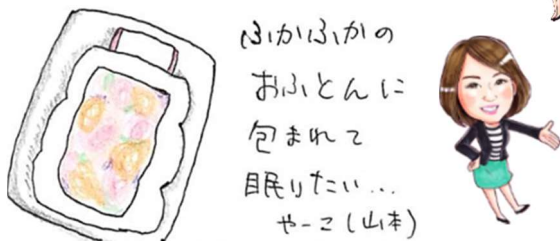 ふかふかの
おふとんに
包まれて
眠りたい…
やーこ(山本)